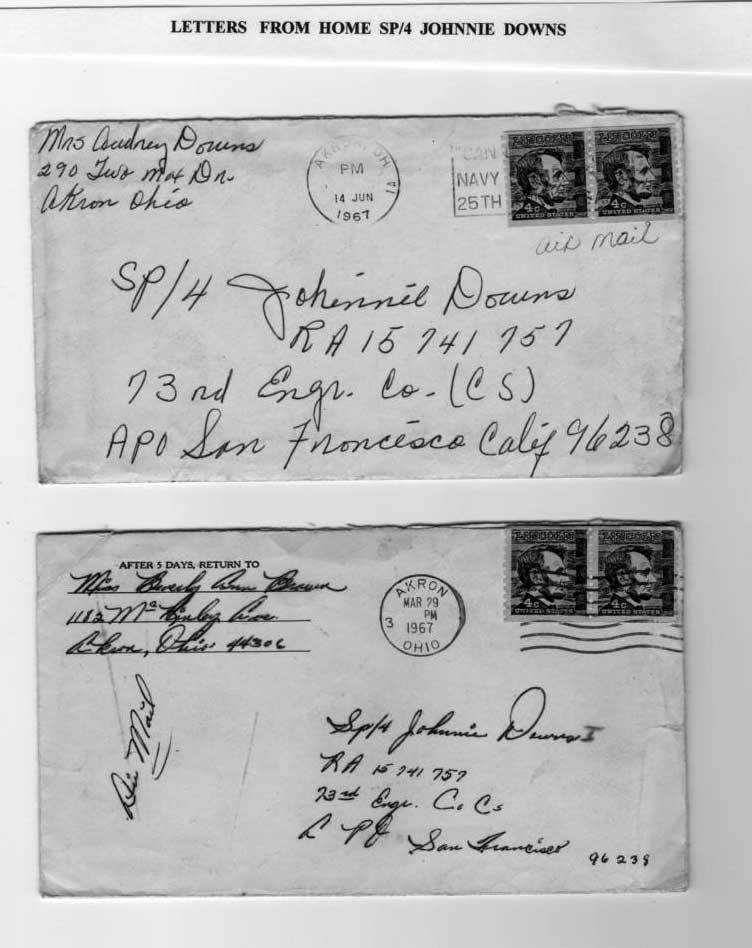 LETTERS FROM HOME SP/4 JOHNNIE DOWNS
Mrs Audrey Downs
290 Two Max Dr.
Akron Ohio
AKRON, OH
PM
14 JUN
1967
"CAN
NAVY
25TH
LINCOLN LINCOLN
4c 4c
UNITED STATES UNITED STATES
Air Mail
SP/4 Johinnie Downs
RA 15 741 757
73rd Engr. Co. (CS)
APO San Francisco Calif 96238
AFTER 5 DAYS, RETURN TO
Miss Beverly Ann Brown
1182 McKinley Ave.
Akron, Ohio 44306
AKRON
MAR 29
3 PM
1967
OHIO
LINCOLN LINCOLN
4c 4c
UNITED STATES UNITED STATES
Air Mail
Sp/4 Johnnie Downs
RA 15 741 757
73rd Engr. Co Cs
A P O San Francisco 96238